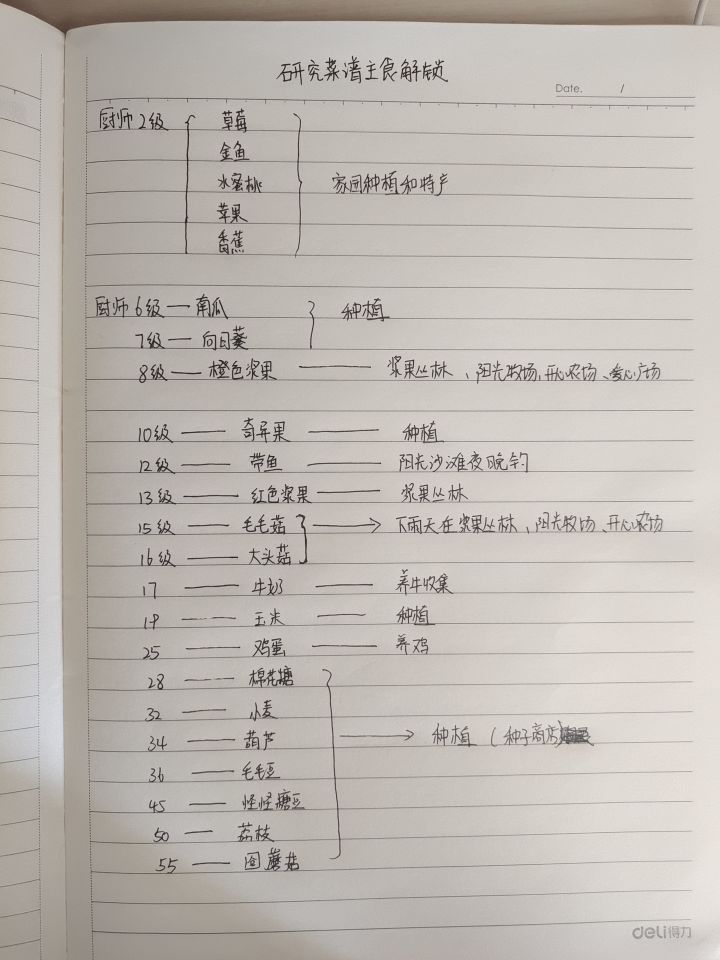 研究菜谱主食解锁
Date. /
厨师2级 草莓
金鱼
水蜜桃 家园种植和特产
苹果
香蕉
厨师6级 — 南瓜 种植
7级 — 向日葵
8级 — 橙色浆果 —— 浆果丛林、阳光牧场、开心农场、爱心广场
10级 —— 奇异果 —— 种植
12级 —— 带鱼 —— 阳光沙滩夜晚钓
13级 —— 红色浆果 —— 浆果丛林
15级 —— 毛毛菇 → 下雨天在浆果丛林、阳光牧场、开心农场
16级 —— 大头菇
17 —— 牛奶 —— 养牛收集
19 —— 玉米 —— 种植
25 —— 鸡蛋 —— 养鸡
28 —— 棉花糖
32 —— 小麦
34 —— 葫芦 → 种植(种子商店)
36 —— 毛毛豆
45 —— 怪怪糖豆
50 — 荔枝
55 —— 圆蘑菇
deli得力